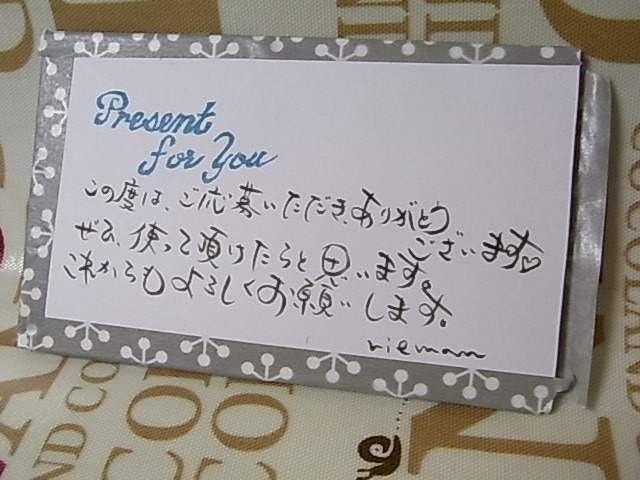 Present
for You
この度は、ご応募いただき、ありがとう
ございます♡
ぜひ、使って頂けたらと思います。
これからもよろしくお願いします。
rieman
COCOLAND